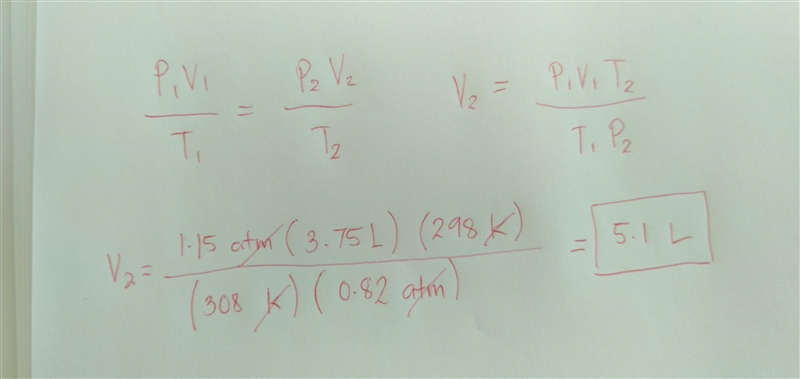 P₁V₁ / T₁ = P₂ V₂ / T₂
V₂ = P₁V₁ T₂ / T₁ P₂
V₂ = 1.15 atm (3.75 L) (298 K) / (308 K) (0.82 atm) = 5.1 L